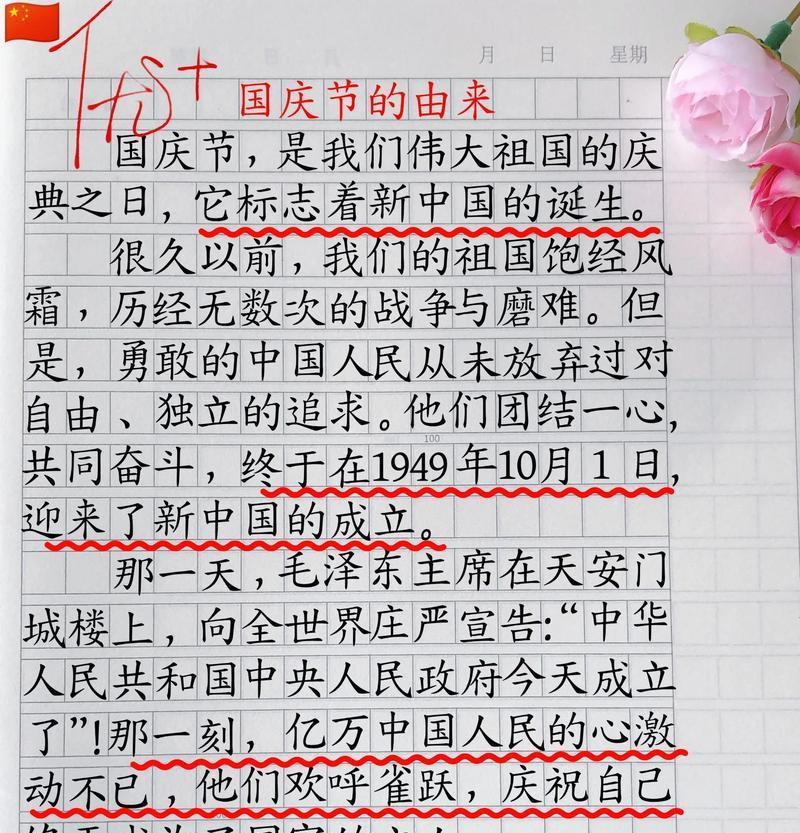 月 日 星期
优+
国庆节的由来
国庆节，是我们伟大祖国的庆
典之日，它标志着新中国的诞生。
很久以前，我们的祖国饱经风
霜，历经无数次的战争与磨难。但
是，勇敢的中国人民从未放弃过对
自由、独立的追求。他们团结一心，
100
共同奋斗，终于在1949年10月1日，
迎来了新中国的成立。
那一天，毛泽东主席在天安门
城楼上，向全世界庄严宣告：“中华
人民共和国中央人民政府今天成立
了”！那一刻，亿万中国人民的心激
动不已，他们欢呼雀跃，庆祝自己